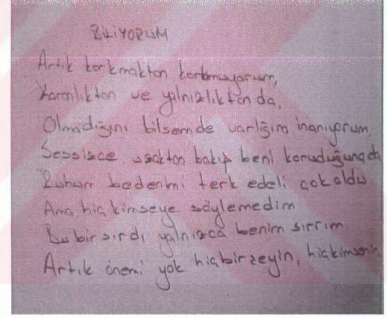 BİLİYORUM
Artık korkmaktan korkmuyorum,
Karanlıktan ve yalnızlıktanda,
Olmadığını bilsemde varlığım inanıyorum
Sessizce uzaktan bakıp beni koruduğunada
Ruhum bedenimi terk edeli çok oldu
Ama hiçkimseye söylemedim
Bu bir sırdı yalnızca benim sırrım
Artık önemi yok hiçbirşeyin, hiçkimsenin